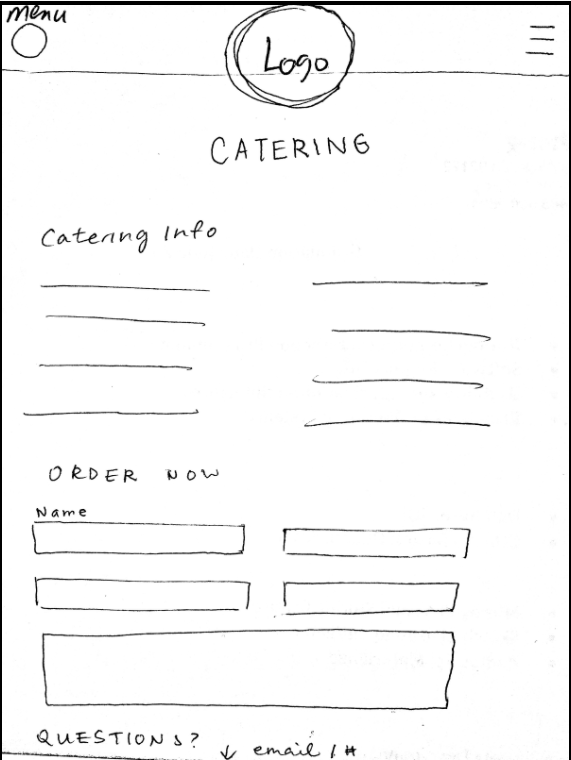 menu
Logo
CATERING
Catering Info
ORDER NOW
Name
QUESTIONS?
↓ email / #